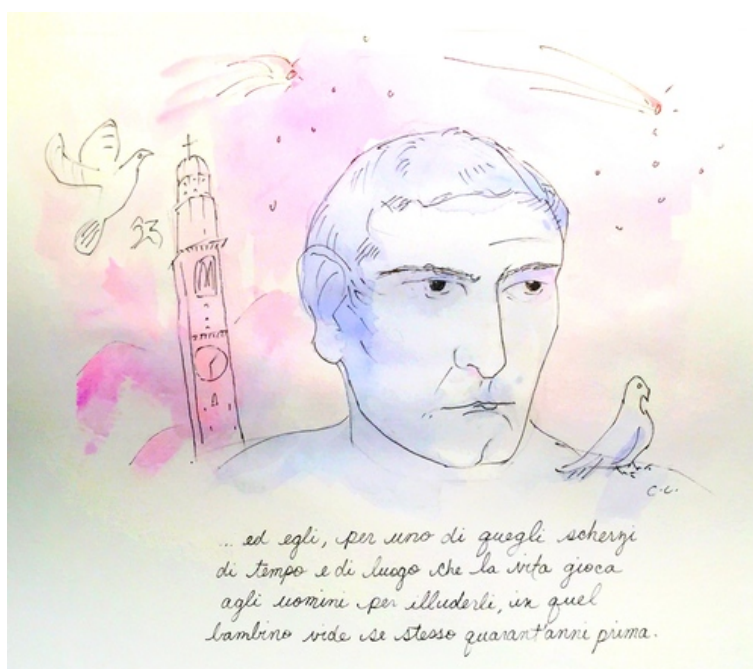 C.L.
... ed egli, per uno di quegli scherzi
di tempo e di luogo che la vita gioca
agli uomini per illuderli, in quel
bambino vide se stesso quarant'anni prima.